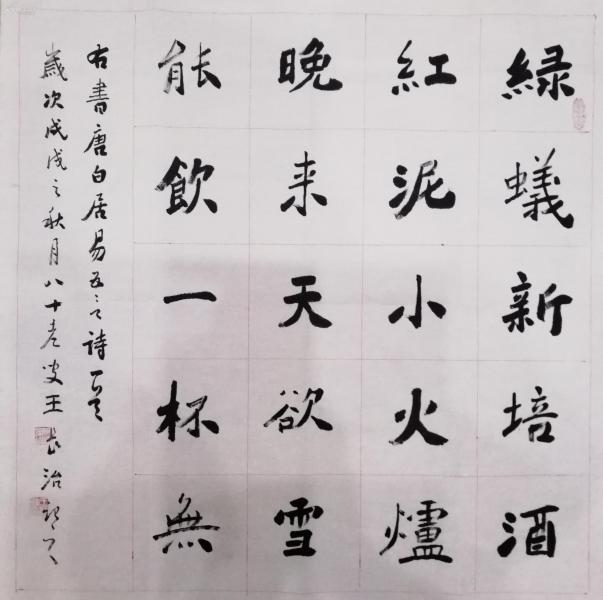 緑蟻新培酒
紅泥小火爐
晚来天欲雪
能飲一杯無
右書唐白居易五言詩一首
歲次戊戌之秋月八十老叟王長治